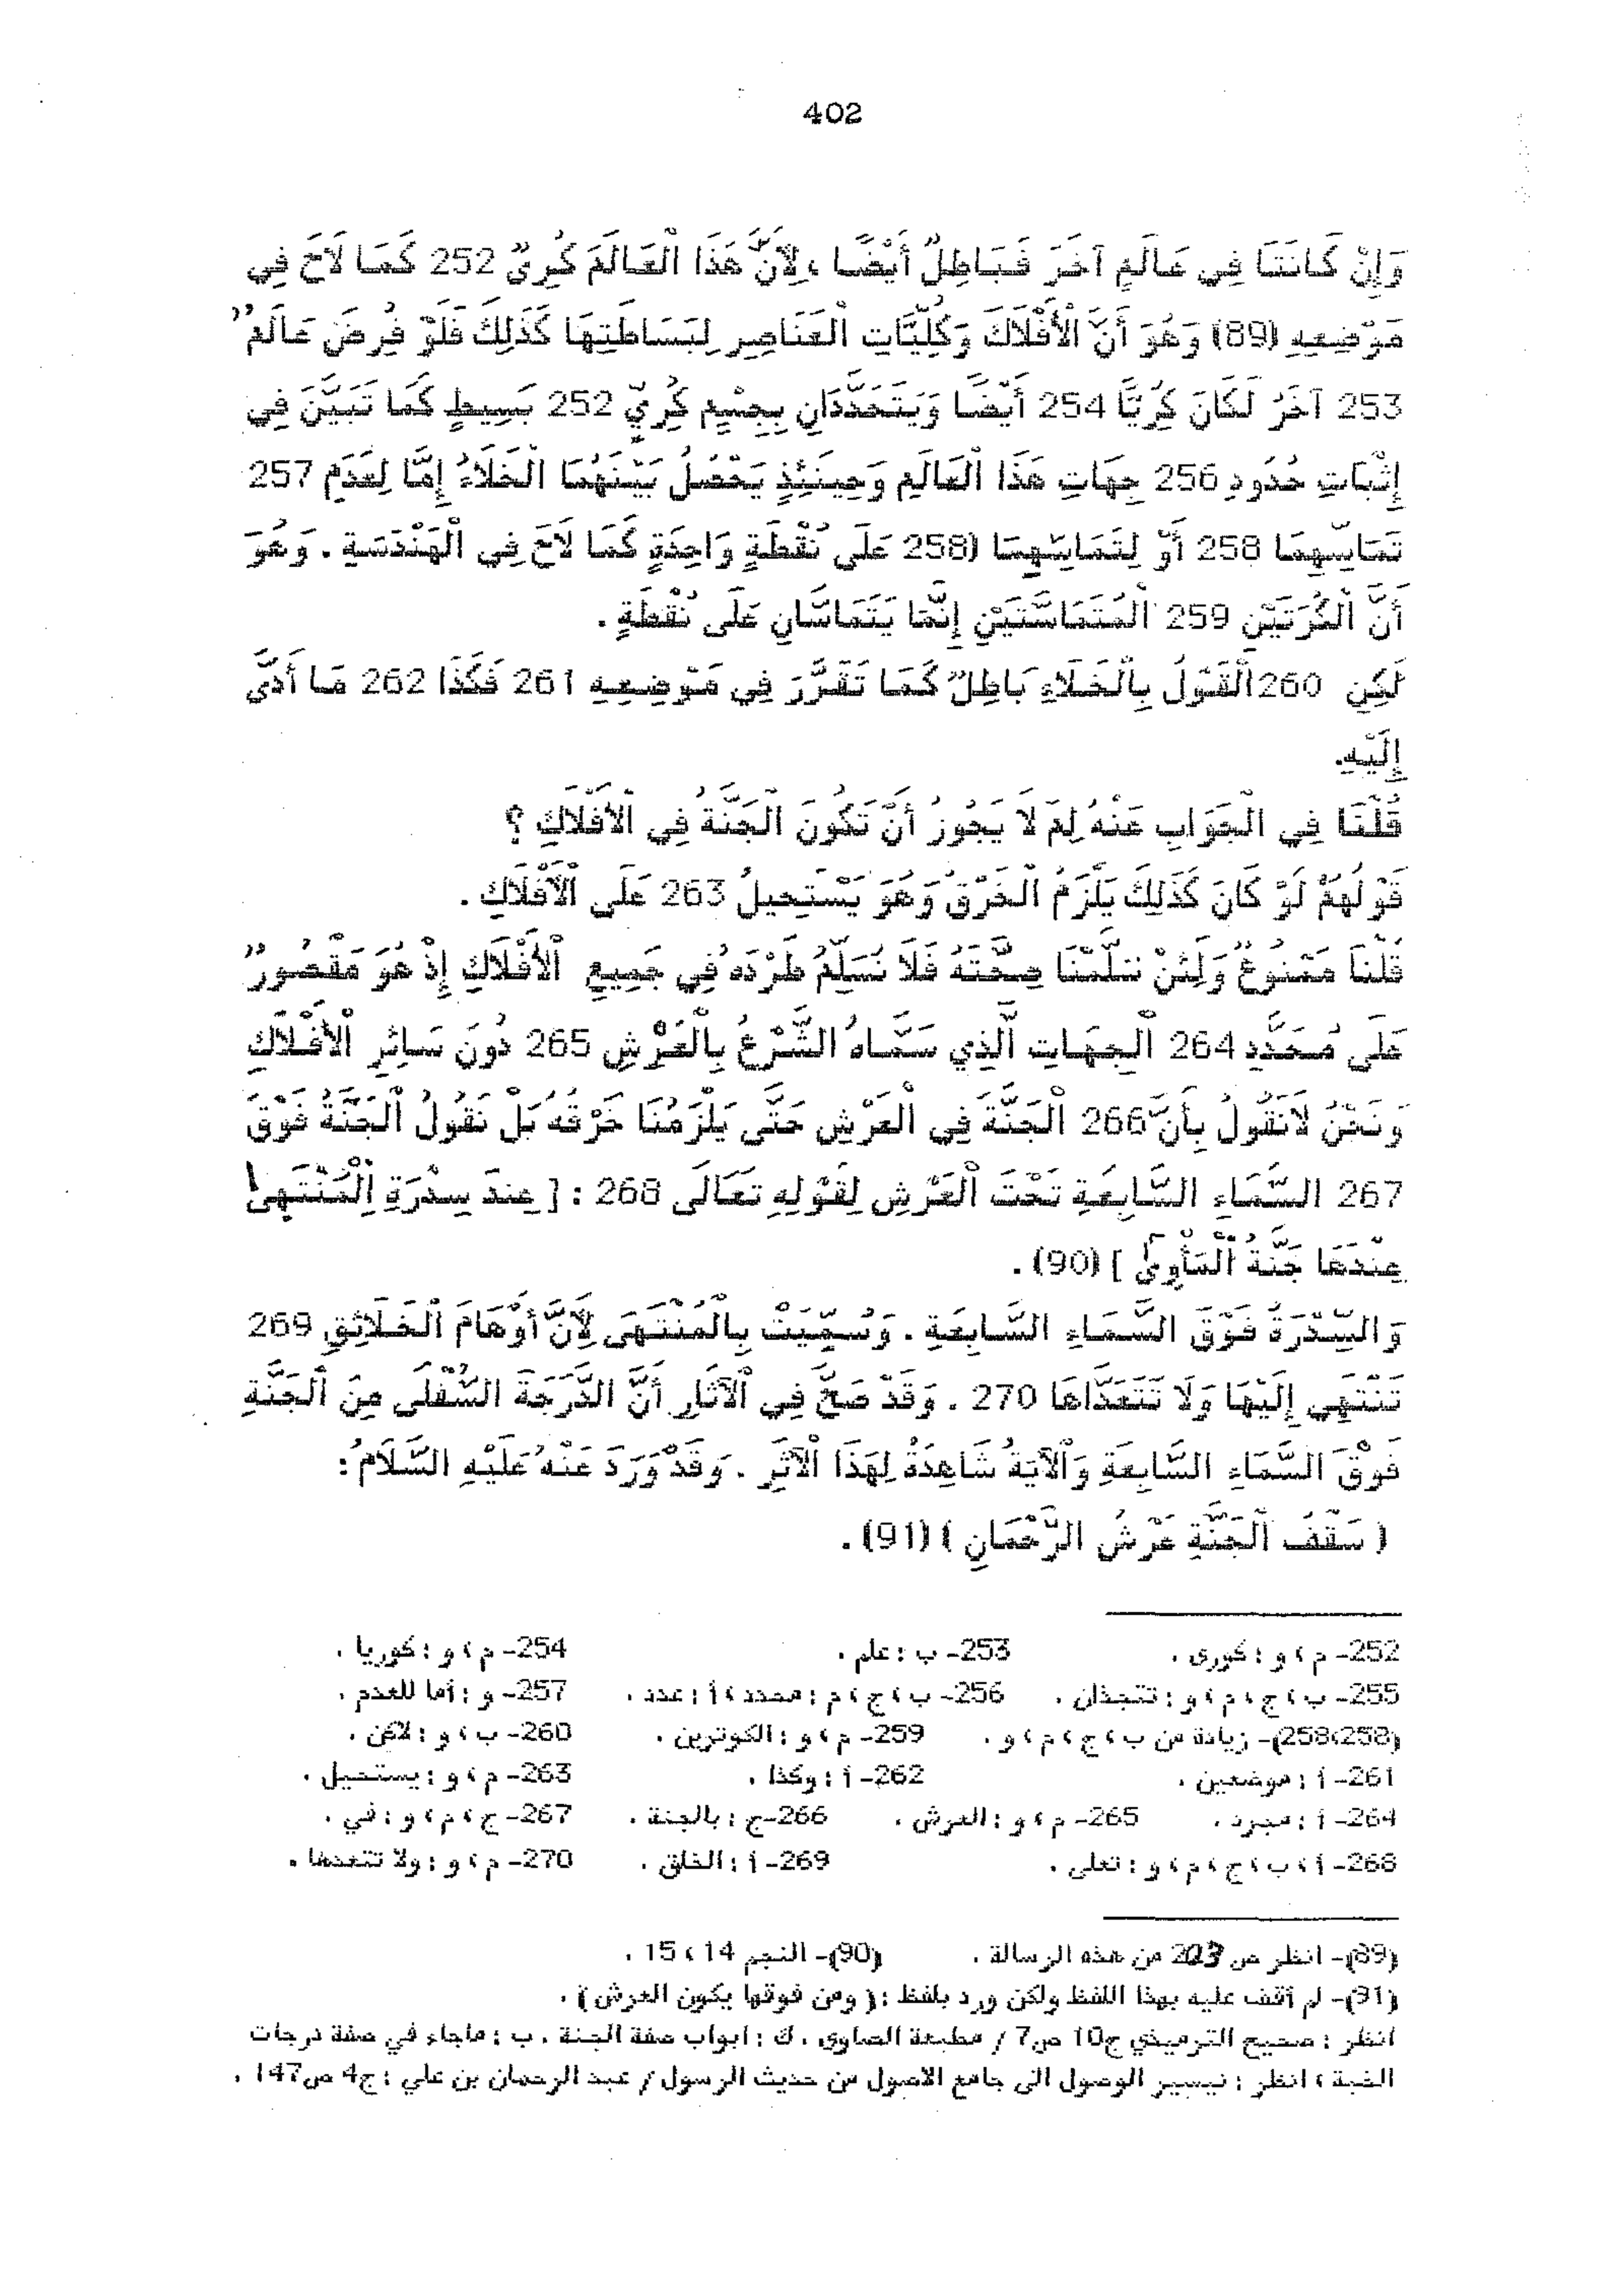 402
وَإِنْ كَانَتَا فِي عَالَمٍ آخَرَ فَبَاطِلٌ أَيْضًا ، لِأَنَّ هَذَا الْعَالَمَ كُرِيٌّ 252 كَمَا لَاحَ فِي
مَوْضِعِهِ (89) وَهُوَ أَنَّ الْأَفْلَاكَ وَكُلِّيَّاتِ الْعَنَاصِرِ لِبَسَاطَتِهَا كَذَلِكَ فَلَوْ فُرِضَ عَالَمٌ
253 آخَرُ لَكَانَ كُرِيًّا 254 أَيْضًا وَيَتَحَدَّدَانِ بِجِسْمٍ كُرِيٍّ 252 بَسِيطٍ كَمَا تَبَيَّنَ فِي
إِثْبَاتِ حُدُودِ 256 جِهَاتِ هَذَا الْعَالَمِ وَحِينَئِذٍ يَحْصُلُ بَيْنَهُمَا الْخَلَاءُ إِمَّا لِعَدَمِ 257
تَمَاسِّهِمَا 258 أَوْ لِتَمَاسِّهِمَا (258 عَلَى نُقْطَةٍ وَاحِدَةٍ كَمَا لَاحَ فِي الْهَنْدَسَةِ . وَهُوَ
أَنَّ الْكُرَتَيْنِ 259 الْمُتَمَاسَّتَيْنِ إِنَّمَا يَتَمَاسَّانِ عَلَى نُقْطَةٍ .
لَكِنِ 260 الْقَوْلُ بِالْخَلَاءِ بَاطِلٌ كَمَا تَقَرَّرَ فِي مَوْضِعِهِ 261 فَكَذَا 262 مَا أَدَّى
إِلَيْهِ.
قُلْنَا فِي الْجَوَابِ عَنْهُ لِمَ لَا يَجُوزُ أَنْ تَكُونَ الْجَنَّةُ فِي الْأَفْلَاكِ ؟
قَوْلُهُمْ لَوْ كَانَ كَذَلِكَ يَلْزَمُ الْخَرْقُ وَهُوَ يَسْتَحِيلُ 263 عَلَى الْأَفْلَاكِ .
قُلْنَا مَمْنُوعٌ وَلَئِنْ سَلَّمْنَا صِحَّتَهُ فَلَا نُسَلِّمُ طَرْدَهُ فِي جَمِيعِ الْأَفْلَاكِ إِذْ هُوَ مَقْصُورٌ
عَلَى مُحَدَّدِ 264 الْجِهَاتِ الَّذِي سَمَّاهُ الشَّرْعُ بِالْعَرْشِ 265 دُونَ سَائِرِ الْأَفْلَاكِ
وَنَحْنُ لَانَقُولُ بِأَنَّ 266 الْجَنَّةَ فِي الْعَرْشِ حَتَّى يَلْزَمُنَا خَرْقَهُ بَلْ نَقُولُ الْجَنَّةُ فَوْقَ
267 السَّمَاءِ السَّابِعَةِ تَحْتَ الْعَرْشِ لِقَوْلِهِ تَعَالَى 268 : [ عِندَ سِدْرَةِ الْمُنْتَهَىٰ
عِنْدَهَا جَنَّةُ الْمَأْوَىٰ ] (90) .
وَالسِّدْرَةُ فَوْقَ السَّمَاءِ السَّابِعَةِ . وَسُمِّيَتْ بِالْمُنْتَهَى لِأَنَّ أَوْهَامَ الْخَلَائِقِ 269
تَنْتَهِي إِلَيْهَا وَلَا تَتَعَدَّاهَا 270 . وَقَدْ صَحَّ فِي الْآثَارِ أَنَّ الدَّرَجَةَ السُّفْلَى مِنَ الْجَنَّةِ
فَوْقَ السَّمَاءِ السَّابِعَةِ وَالْآيَةُ شَاهِدَةٌ لِهَذَا الْأَثَرِ . وَقَدْ وَرَدَ عَنْهُ عَلَيْهِ السَّلَامُ :
( سَقْفُ الْجَنَّةِ عَرْشُ الرَّحْمَانِ ) (91) .
252- م ، و : كورى . 253- ب : علم . 254- م ، و : كوريا .
255- ب ، ج ، م ، و : تتجذان . 256- ب ، ج ، م : محدد ، أ : عدد . 257- و : أما للعدم .
(258،258)- زيادة من ب ، ج ، م ، و . 259- م ، و : الكوترين . 260- ب ، و : لاكن .
261- أ : موضعين . 262- أ : وكذا . 263- م ، و : يستحيل .
264- أ : مجرد . 265- م ، و : العرش . 266- ج : بالجنة . 267- ج ، م ، و : في .
268- أ ، ب ، ج ، م ، و : تعلى . 269- أ : الخلق . 270- م ، و : ولا تتعدها .
(89)- انظر ص 203 من هذه الرسالة . (90)- النجم 14 ، 15 .
(91)- لم أقف عليه بهذا اللفظ ولكن ورد بلفظ : ( ومن فوقها يكون العرش ) .
انظر : صحيح الترميذي ج10 ص7 / مطبعة الصاوي . ك : ابواب صفة الجنة . ب : ماجاء في صفة درجات
الخبة ، انظر : تيسير الوصول الى جامع الاصول من حديث الرسول / عبد الرحمان بن علي : ج4 ص147 .